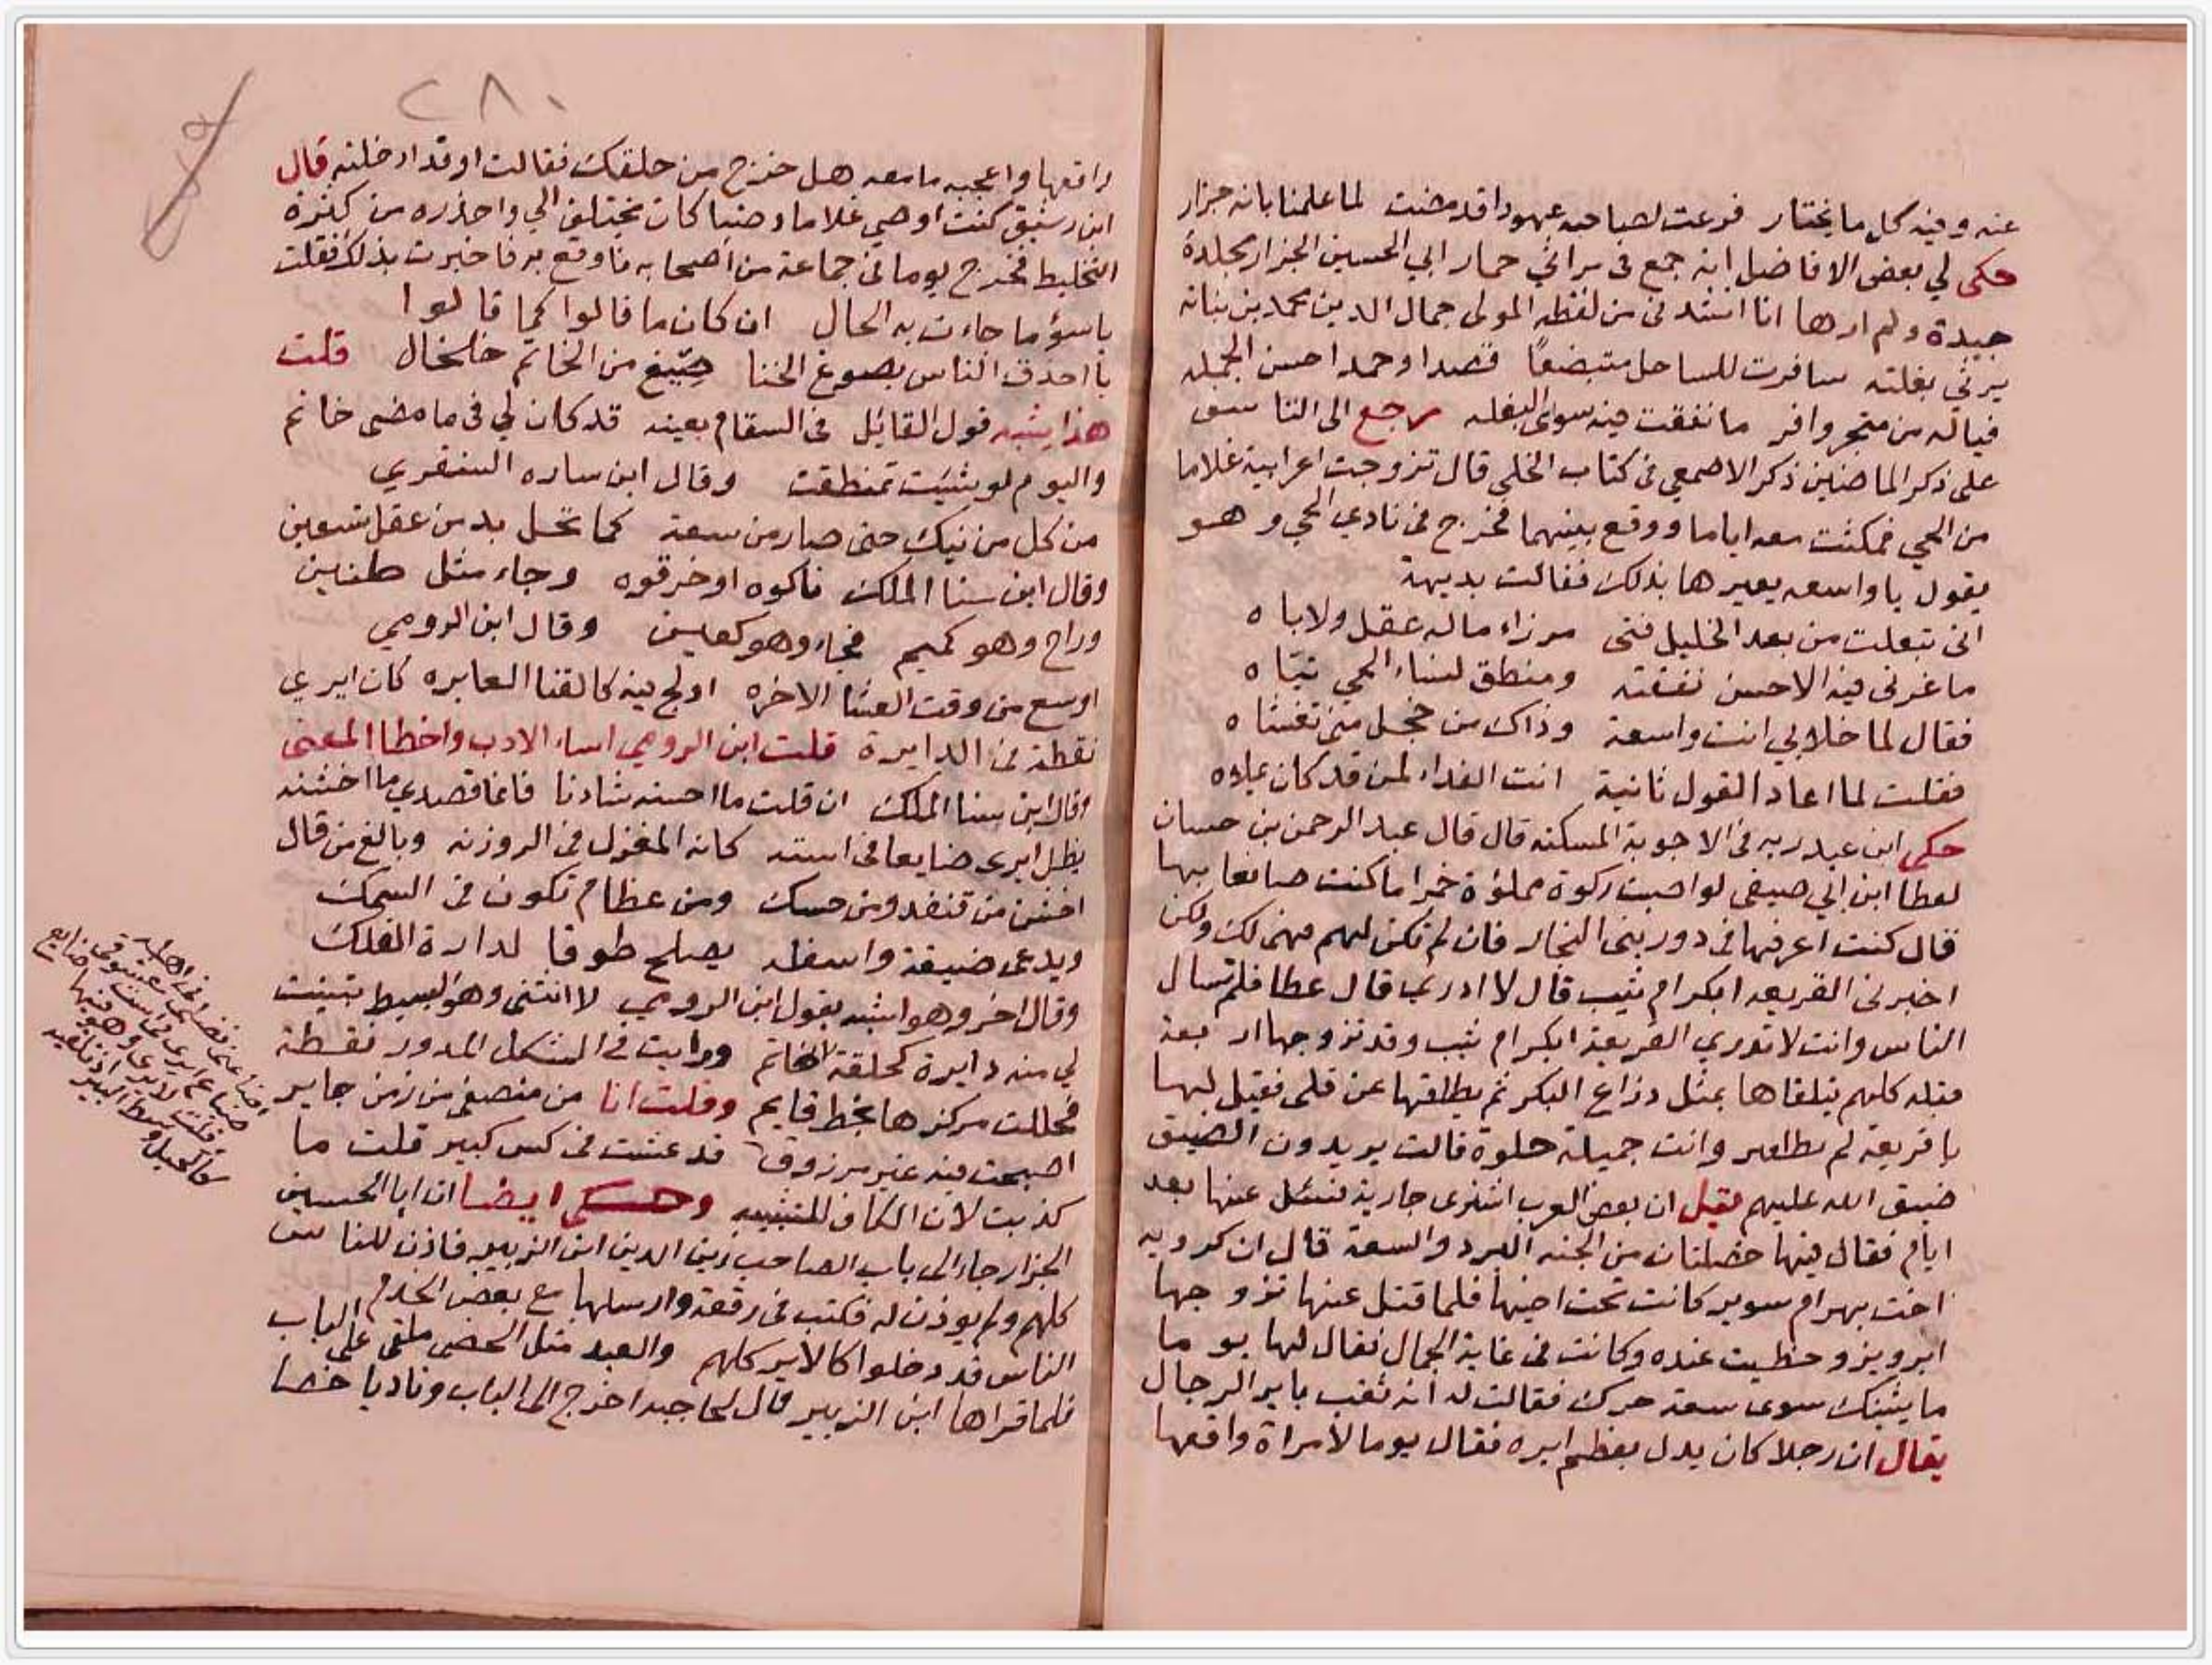 عنه وفيه كل ما يختار فرعت لصاحبه عهودا قد مضت لما علمنا بانه جزار
حكى لي بعض الافاضل انه جمع في مراثي حمار ابي الحسين الجزار مجلدة
جيدة ولم ارها انا انشدني من لفظه المولى جمال الدين محمد بن نباته
يرثي بغلته سافرت للساحل مستبضعا قصدا وحمدا حسن الجمله
فياله من متجر وافر ما نفقت فيه سوى البغله رجع الى التناسق
على ذكر الماضين ذكر الاصمعي في كتاب الحلي قال تزوجت اعرابية غلاما
من الحي فمكثت معه اياما ووقع بينهما فخرج في نادي الحي وهو
يقول يا واسعه يعيرها بذلك فقالت بديهة
اني تبعلت من بعد الخليل فتى مرزاء ماله عقل ولا باه
ما غرني فيه الا حسن نقشته ومنطق لنساء الحي تياه
فقال لما خلا بي انت واسعة وذاك من خجل مني تغشاه
فقلت لما اعاد القول ثانية انت الفداء لمن قد كان يملاه
حكى ابن عبد ربه في الاجوبة المسكته قال قال عبد الرحمن بن حسان
لعطا ابن ابي صيفي لو اصبت ركوة مملوة خمرا ما كنت صانعا بها
قال كنت اعرفها في دور بني النجار فان لم تكن لهم فهي لك ولكن
اخبرني الفريعه ابكر ام ثيب قال لا ادري قال عطا فلم تسال
الناس وانت لا تدري الفريعة ابكر ام ثيب وقد تزوجها اربعة
قبله كلهم يتلقاها بمثل ذراع البكر ثم يطلقها عن قلى فقيل لها
يا فريعه لم تطلقين وانت جميلة حلوة قالت يريدون الضيق
ضيق الله عليهم فقيل ان بعض العرب اشترى جارية فسئل عنها بعد
ايام فقال فيها خصلتان من الجنه البرد والسعة قال ان كرديه
اخت بهرام سوبر كانت تحت اخيها فلما قتل عنها تزوجها
ابرويز وحظيت عنده وكانت في غاية الجمال فقال لها يوما
ما يشينك سوى سعة حرك فقالت له انه ثقب باير الرجال
يقال ان رجلا كان يدل بعظم ايره فقال يوما لامراة واقعها
٢٨٠
واقعها واعجبه ما معه هل خرج من حلقك فقالت اوقد ادخلته قال
ابن رشيق كنت اوصي غلاما وضيا كان يختلف الي واحذره من كثرة
التخليط فخرج يوما في جماعة من اصحابه فاوقع به فاخبرت بذلك فقلت
يا سؤ ما جاءت به الحال ان كان ما قالوا كما قالوا
يا احذق الناس بصوغ الخنا صيغ من الخاتم خلخال قلت
هذا يشبه قول القائل في السقام بعينه قد كان لي في ما مضى خاتم
واليوم لو شئت تمنطقت وقال ابن ساره الشنتري
من كل من نيك حتى صار من سعة كما تحل يد من عقل تسعين
وقال ابن سنا الملك ناكوه او خرقوه وجاء مثل طنين
وراح وهو كميم فجاء وهو كعين وقال ابن الرومي
اوسع من وقت العشا الاخره اولج فيه كالقنا العابره كان ايري
نقطة في الدايرة قلت ابن الرومي اساء الادب واخطا المعنى
وقال ابن سنا الملك ان قلت ما احسنه شادنا فانما قصدي ما اخشنه
يظل ايري ضايعا في استه كانه المغزل في الروزنه وبالغ من قال
اخشن من قنفد ومن حسك ومن عظام تكون في السمك
ويدعى ضيقة واسفله يصلح طوقا لدارة الفلك
وقال اخر وهو اشبه بقول ابن الرومي لا انثني وهو البسيط تبينت
لي منه دايرة كحلقة الخاتم ورايت في الشكل المدور نقطة
فجللت مركزها بخط قايم وقلت انا من منصفي من زمن جاير
اصبحت فيه غير مرزوق قد عشت في كس كبير قلت ما
كذبت لان الكاف للتشبيه وحكى ايضا ان ابا الحسين
الجزار جاء الى باب الصاحب زين الدين ابن الزبير فاذن للناس
كلهم ولم يوذن له فكتب في رقعة وارسلها مع بعض الخدم
الناس قد دخلوا كالاير كلهم والعبد مثل الخصى ملقى على الباب
فلما قراها ابن الزبير قال لحاجبه اخرج الى الباب وناد يا خصا
ضاع ايري في است
قلت لايري وهو فيها ضايع
كالحبل وسط البير اذ تلقيه